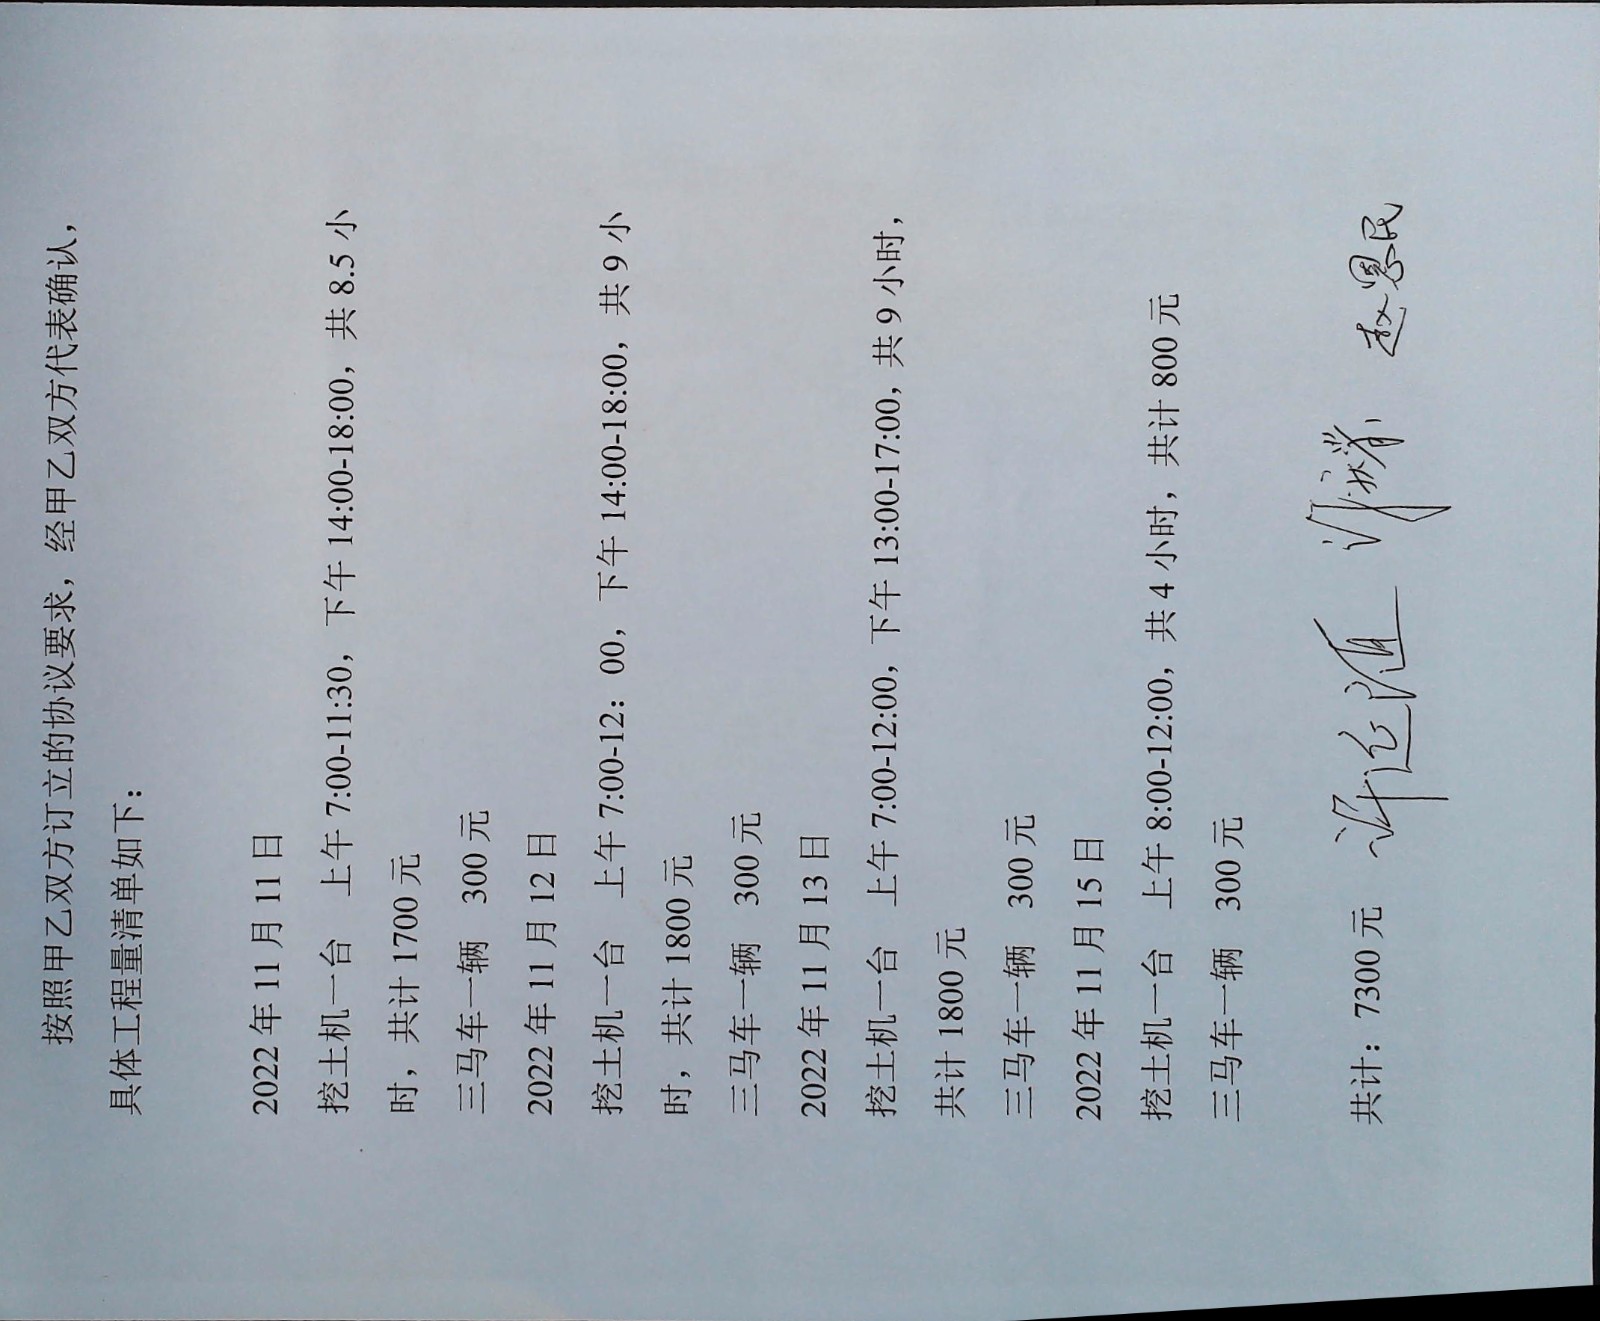 按照甲乙双方订立的协议要求，经甲乙双方代表确认，
具体工程量清单如下：
2022 年 11 月 11 日
挖土机一台 上午 7:00-11:30，下午 14:00-18:00，共 8.5 小
时，共计 1700 元
三马车一辆 300 元
2022 年 11 月 12 日
挖土机一台 上午 7:00-12：00，下午 14:00-18:00，共 9 小
时，共计 1800 元
三马车一辆 300 元
2022 年 11 月 13 日
挖土机一台 上午 7:00-12:00，下午 13:00-17:00，共 9 小时，
共计 1800 元
三马车一辆 300 元
2022 年 11 月 15 日
挖土机一台 上午 8:00-12:00，共 4 小时，共计 800 元
三马车一辆 300 元
共计：7300 元 赵恩民